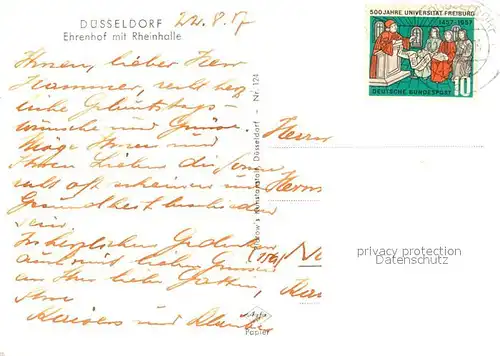 DÜSSELDORF
Ehrenhof mit Rheinhalle
22.8.57
Ihnen, lieber Herr
Hammer, recht herz-
liche Geburtstags-
wünsche und Grüße.
Möge Ihnen und
Ihren Lieben die Sonne
recht oft scheinen und
Gesundheit beschieden
sein.
In herzlichem Gedenken
auch mit lieben Grüssen
an Ihre liebe Gattin,
Ihre
Kaisers und
500 JAHRE UNIVERSITÄT FREIBURG
1457-1957
DEUTSCHE BUNDESPOST
10
Herrn
Kunstanstalt, Düsseldorf - Nr. 124
Papier
privacy protection
Datenschutz